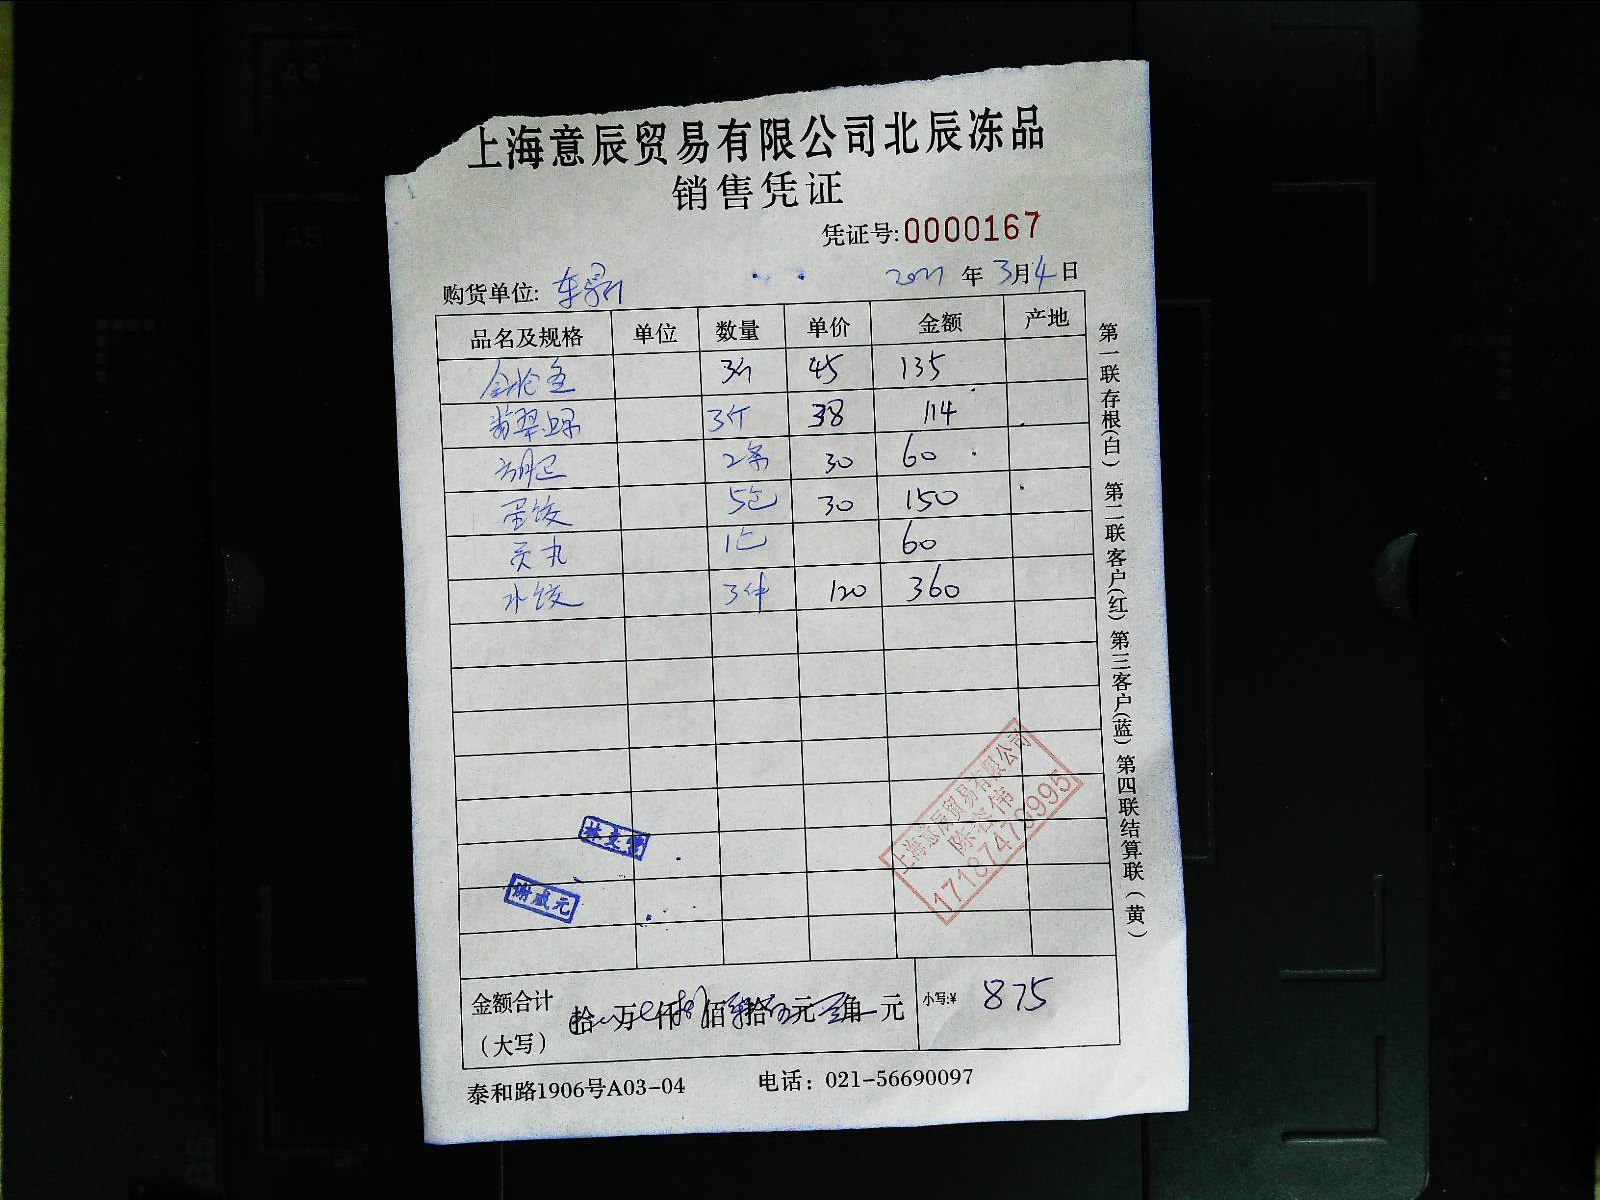 上海意辰贸易有限公司北辰冻品
销售凭证
凭证号:0000167
购货单位: 2021 年 3月4日
品名及规格 单位 数量 单价 金额 产地
金枪鱼 3个 45 135
翡翠螺 3个 38 114
2条 30 60
蛋饺 5包 30 150
贡丸 1包 60
水饺 3件 120 360
第一联存根(白) 第二联客户(红) 第三客户(蓝) 第四联结算联(黄)
上海意辰贸易有限公司
17187470995
金额合计
(大写)
拾 万 仟 佰 拾 元 角 元
小写:¥ 875
泰和路1906号A03-04 电话: 021-56690097
A4
A5
B5